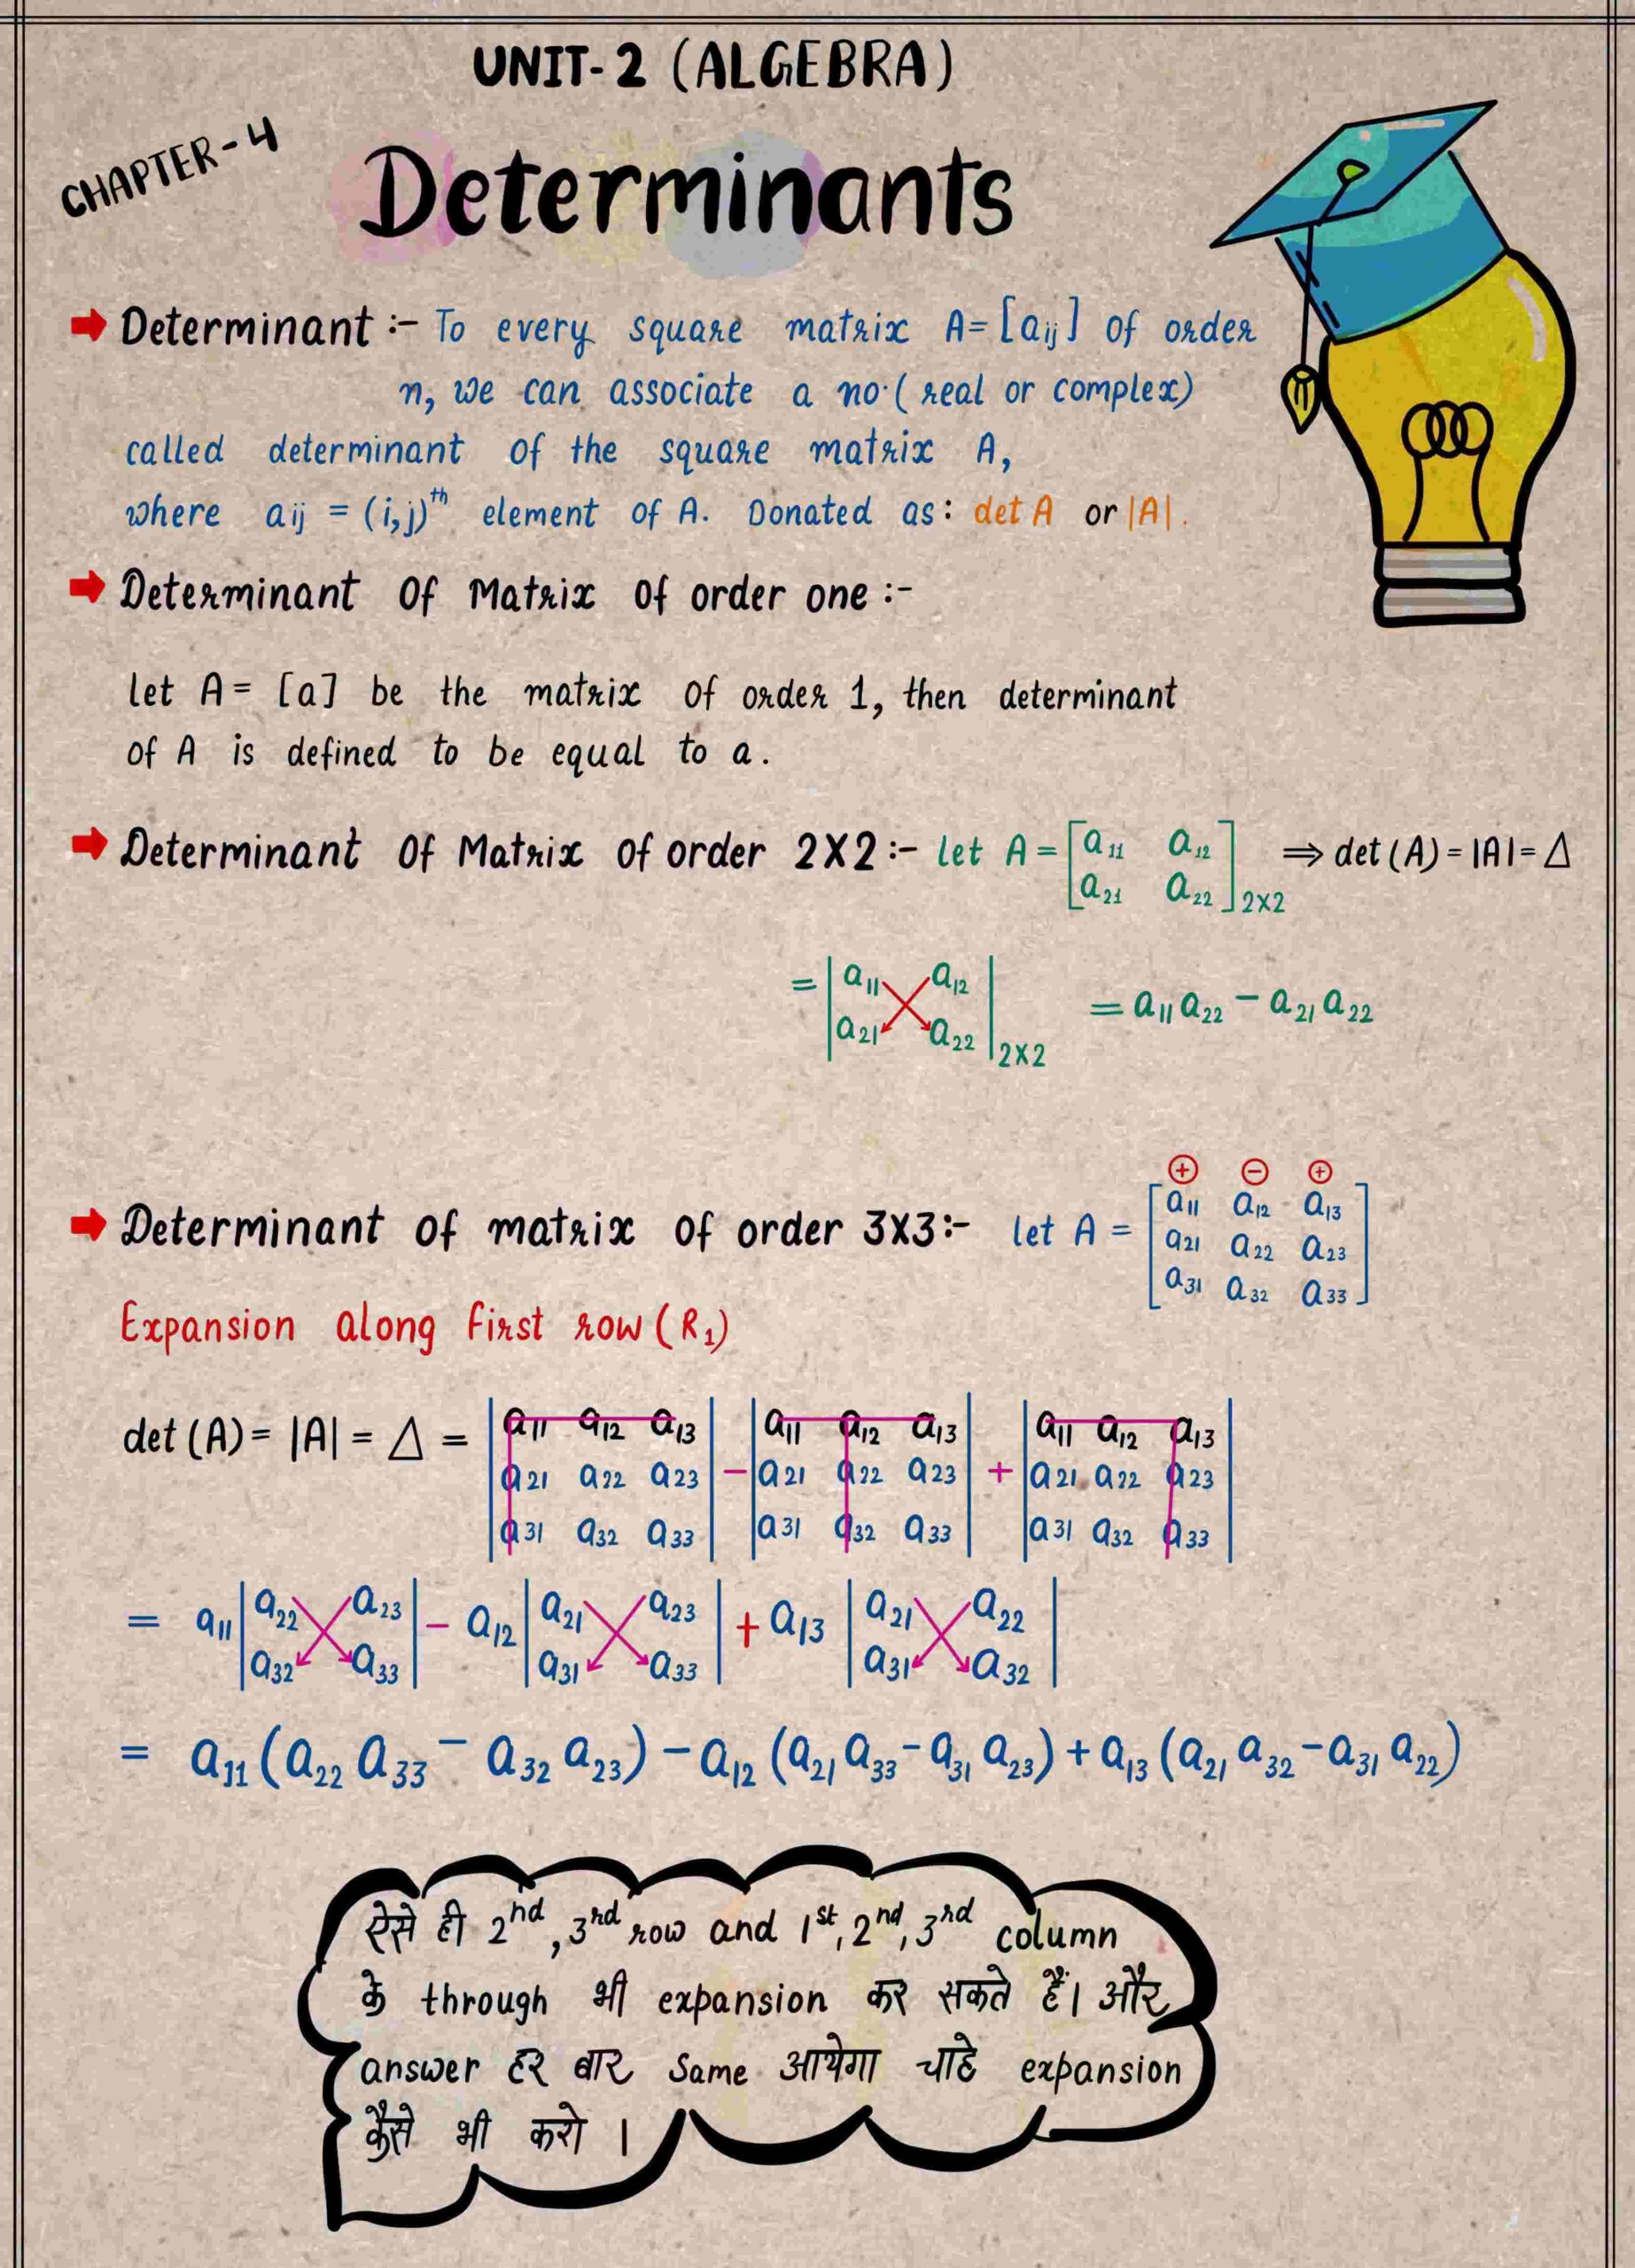 UNIT-2 (ALGEBRA)
CHAPTER-4
Determinants
Determinant :- To every square matrix A=[aij] of order
n, we can associate a no. (real or complex)
called determinant of the square matrix A,
where aij = (i,j)th element of A. Donated as: det A or |A|.
Determinant Of Matrix of order one :-
let A = [a] be the matrix of order 1, then determinant
of A is defined to be equal to a.
Determinant Of Matrix of order 2X2 :- let A = [a11 a12 ⇒ det (A) = |A| = Δ
a21 a22]2X2
= |a11 a12 = a11 a22 - a21 a22
a21 a22|2X2
⊕ ⊖ ⊕
Determinant of matrix of order 3X3:- let A = [a11 a12 a13
a21 a22 a23
a31 a32 a33]
Expansion along first row (R1)
det (A) = |A| = Δ = |a11 a12 a13| - |a11 a12 a13| + |a11 a12 a13|
|a21 a22 a23| |a21 a22 a23| |a21 a22 a23|
|a31 a32 a33| |a31 a32 a33| |a31 a32 a33|
= a11 |a22 a23| - a12 |a21 a23| + a13 |a21 a22|
|a32 a33| |a31 a33| |a31 a32|
= a11 (a22 a33 - a32 a23) - a12 (a21 a33 - a31 a23) + a13 (a21 a32 - a31 a22)
ऐसे ही 2nd, 3rd row and 1st, 2nd, 3rd column
के through भी expansion कर सकते हैं। और
answer हर बार Same आयेगा चाहे expansion
कैसे भी करो ।